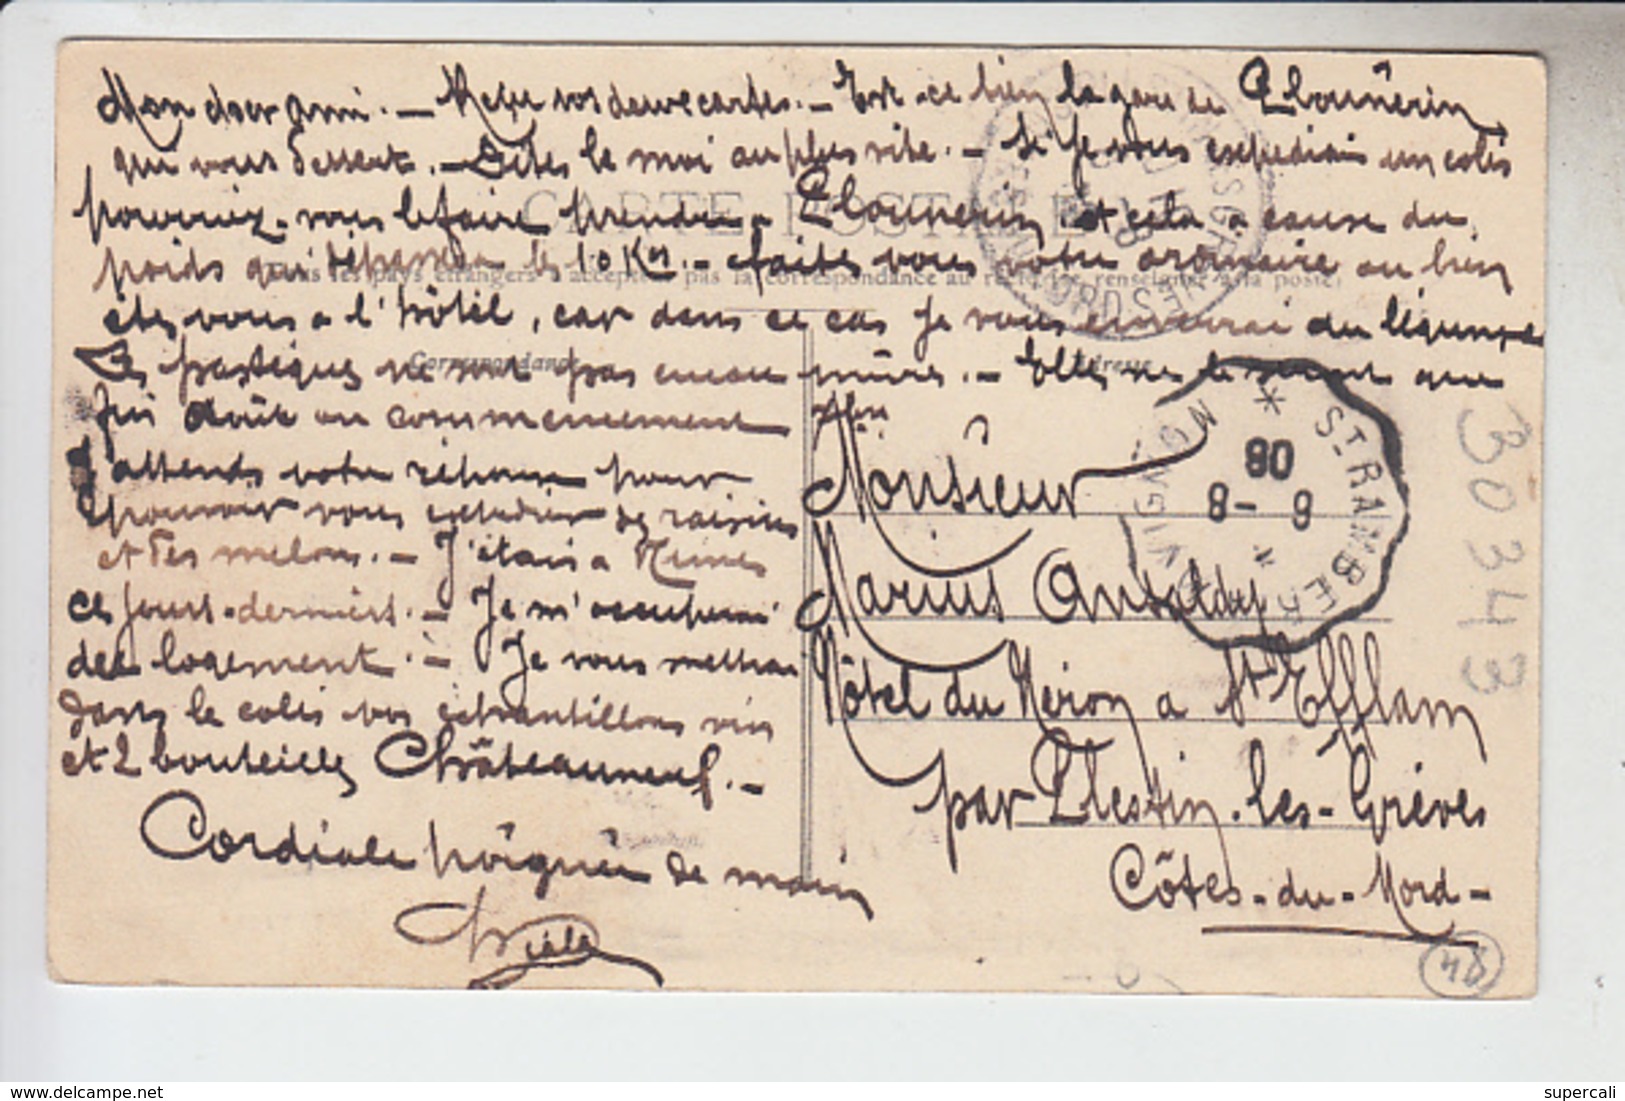 Mon cher ami. — Reçu vos deux cartes. — Est-ce bien la gare de Plounérin
qui vous dessert. — Dites le moi au plus vite. — Si je vous expédiais un colis
pourriez-vous le faire prendre a Plounerin et cela a cause du
poids qui dépassera les 10 Kos. — faites vous votre ordinaire ou bien
êtes vous a l'hôtel, car dans ce cas je vous enverrai du légumes
Les pastèques ne sont pas encore mûres. — Elles ne le seront que
fin Août ou commencement 7bre
J'attends votre réponse pour
pouvoir vous expédier des raisins
et des melons. — J'étais a Nimes
ces jours-derniers. — Je m'occuperai
du logement. — Je vous mettrai
dans le colis vos échantillons vin
et 2 bouteilles Châteauneuf. —
Cordiale poignée de main
CARTE POSTALE
Tous les pays étrangers n'acceptent pas la correspondance au recto (se renseigner à la poste)
Correspondance
Adresse
Monsieur
Marius
Hôtel du Néron a St Efflam
par Plestin-les-Grèves
Côtes-du-Nord-
ST RAMBERT
80
8-9
30343
48
delcampe.net
supercali